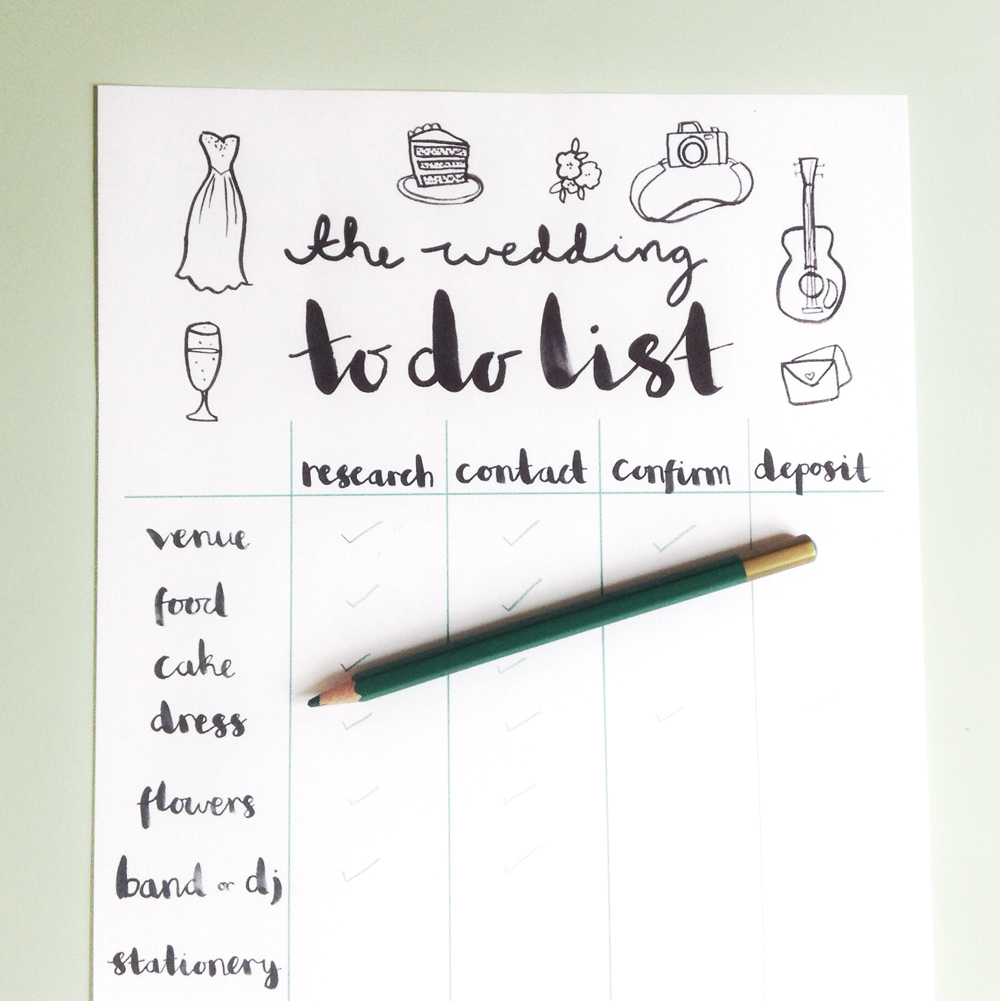 the wedding
to do list
research contact confirm deposit
venue
food
cake
dress
flowers
band or dj
stationery